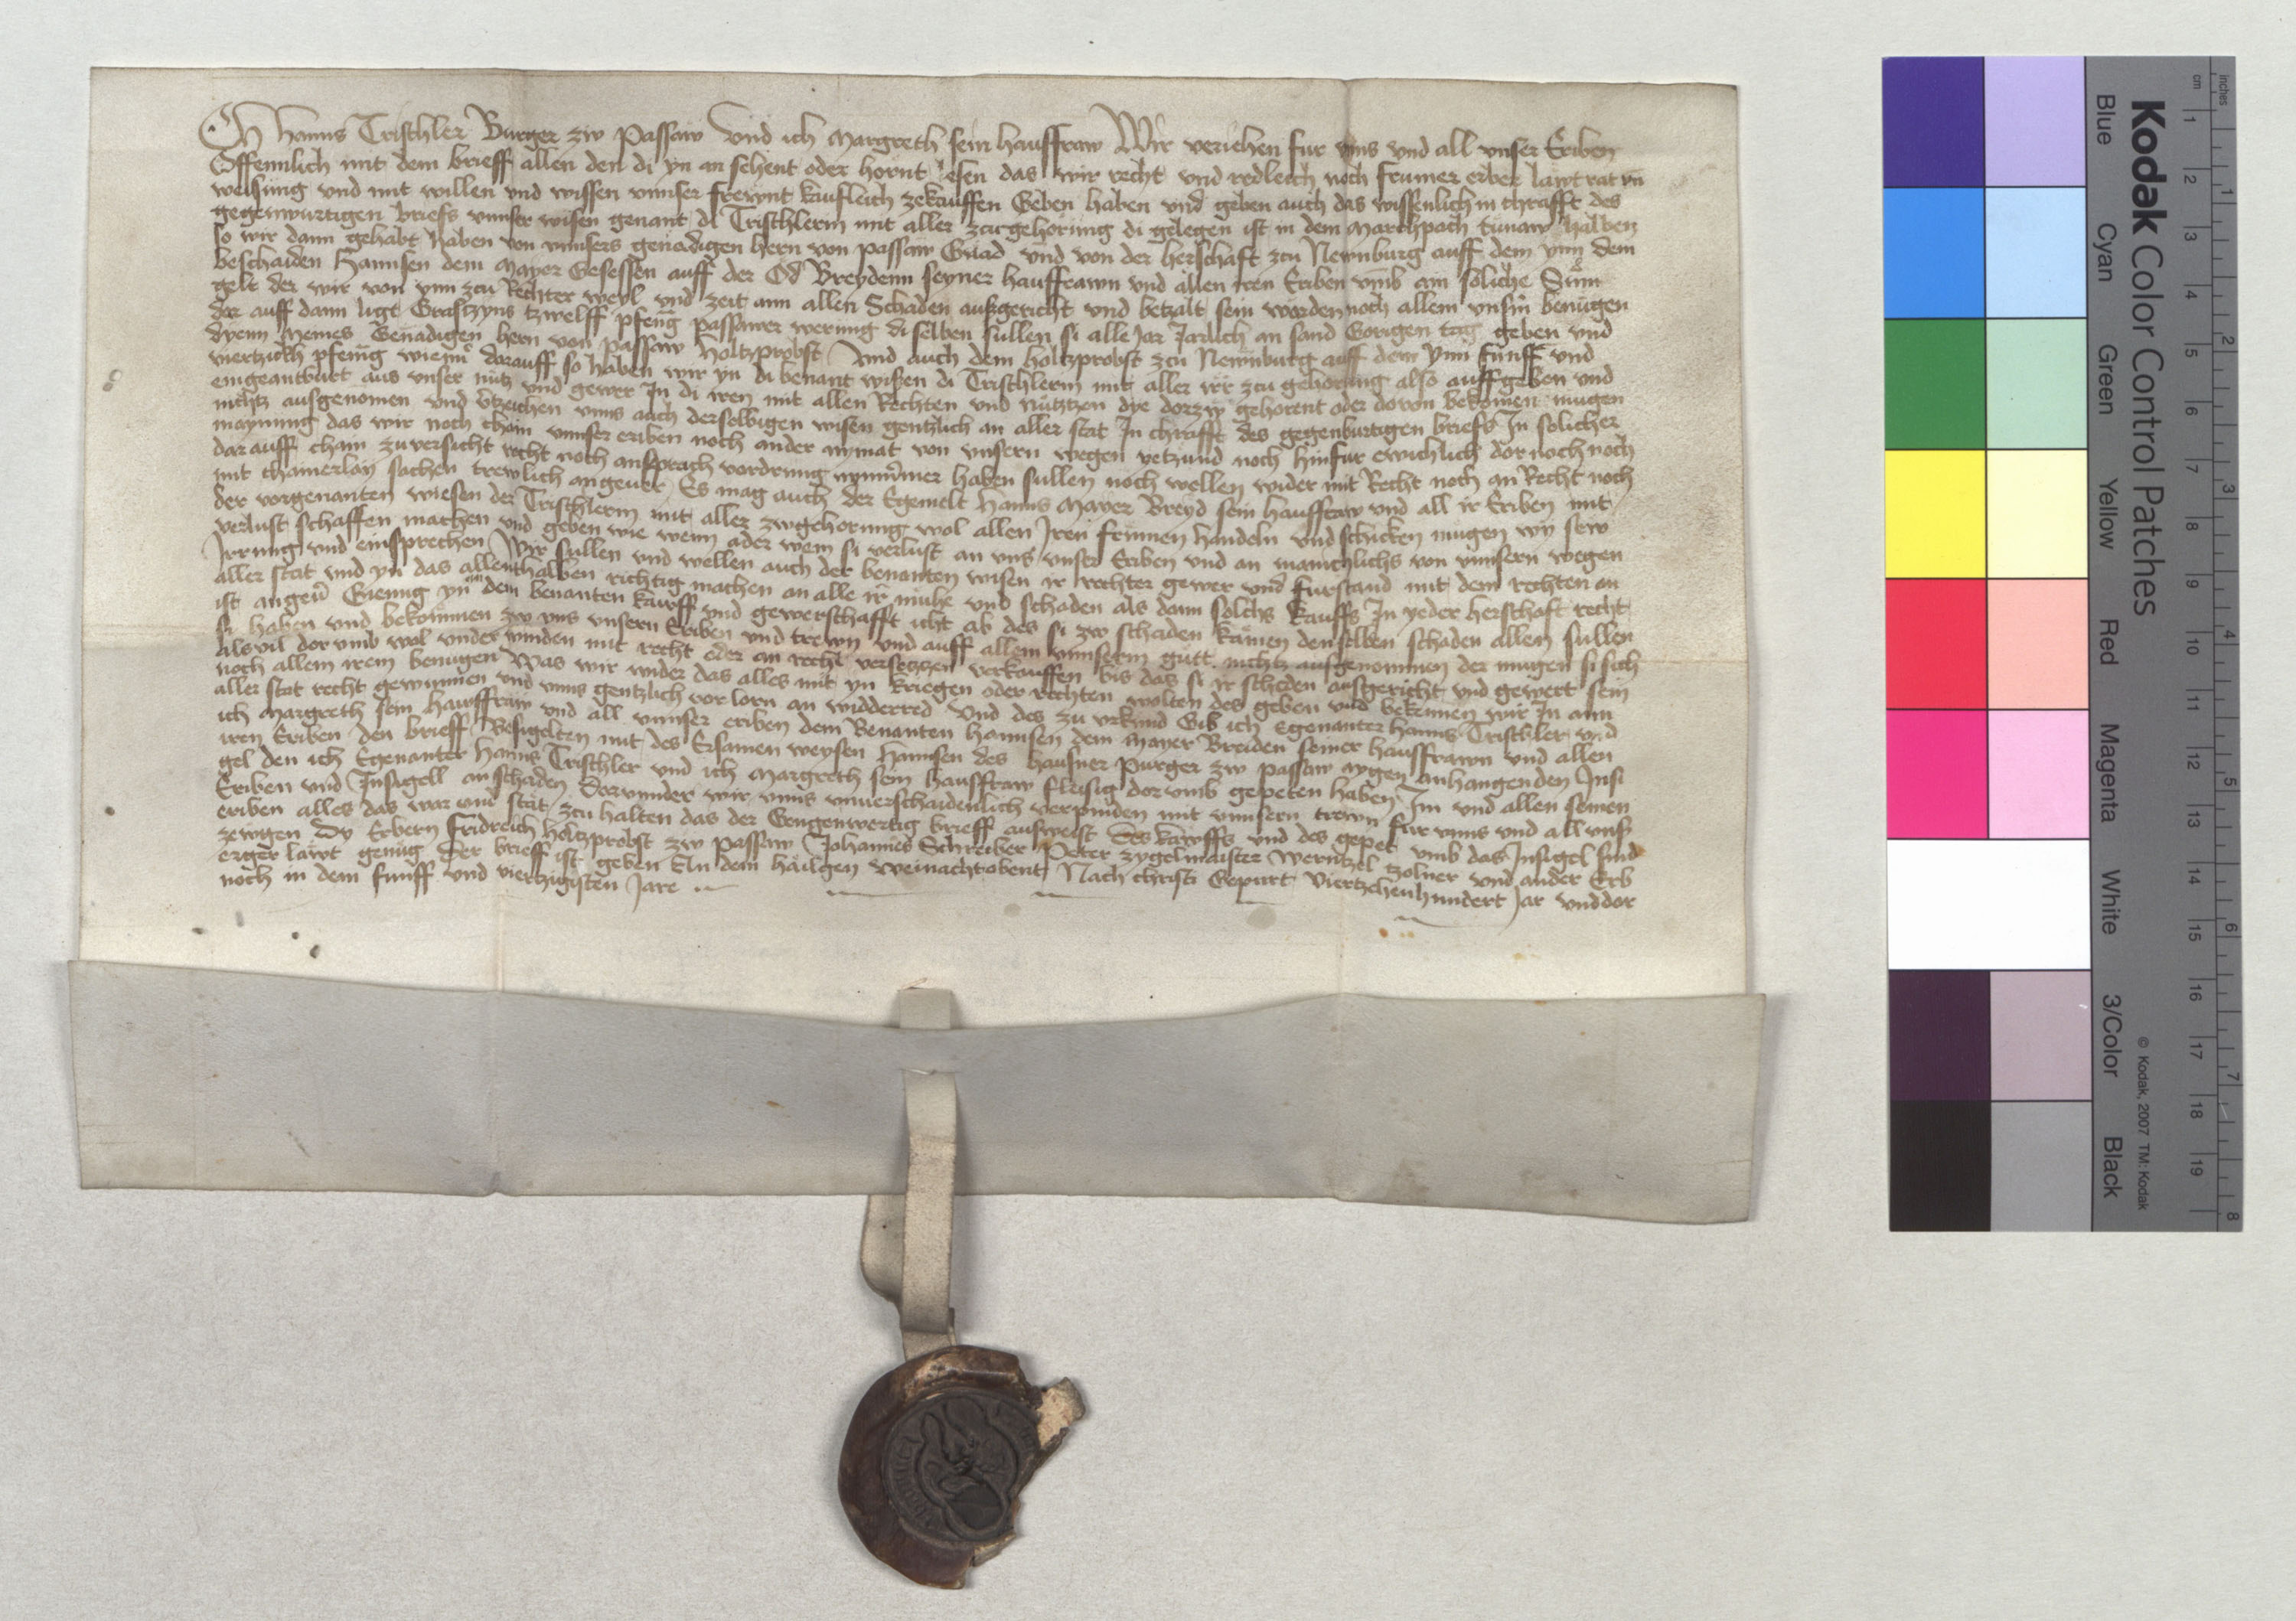 Ich Hanns Trischler Burger zw Passaw Vnd ich Margreth sein hausfraw Wir veriehen fur vnns vnd all vnser Eriben
Offennlich mit dem brieff allen den di yn an sehent oder hornt lesen das wir recht vnd redleich noch frumer erber lawt rat vn
weisung vnd mit willen vnd wissen vnnser frewnt kaufleich zekauffen Geben haben vnd geben auch das wissenlich in chrafft des
gegenwurtigen briefs vnnser wisen genant di Trischlerin mit aller zcugehorung di gelegen ist in dem Marchpach tunaw halben
so wir dann gehabt haben von vnnsers genadigen hern von passaw Gnad vnd von der herschaft zcu Newnburg auff dem ynn dem
beschaiden Hannsen dem Mayer Gesessen auff der Od Breydenn seyner hausfrawn vnd allen iren Eriben vmb ain soliche Sum
gelt der wir von ynn zcu Rechter weyl vnd zeit ann allen Schaden ausgericht vnd betzalt sein worden noch allem vnsm benugen
dor auff dann ligt Graszyns tzwelff pfeng passawer werung di selben sullen si alle Jar Jarlich an sand Gorigen tag geben vnd
dyenn Meines Genadigen hern von passaw Holtzprobst Vnd auch dem holtzprobst zcu Newnburg auff dem Ynn funff vnd
viertzickh pfenig wienn dorauff so haben wir yn di benant wisen di Trischlerin mit aller irr zcu gehorung also auffgeben vnd
eingeantburt aus vnser nutz vnd gewer In di iren mit allen Rechten vnd nutzen dye dorzw gehorent oder doron bekomen mugen
nichtz ausgenomen vnd vtzeichen vnns auch derselbigen wisen gentzlich an aller stat In chrafft des gegenburtigen briefs In solicher
maynung das wir noch chain vnnser eriben noch ander nymat von vnsern wegen yetzund noch hinfur ewichlich dor noch noch
dar auff chain zuversicht recht noch ansprach vordrung nymmer haben sullen noch wellen wider mit Recht noch an Recht noch
mit chainerlay sachen trewlich angever Es mag auch der Egemelt Hanns Mayer Breyd sein hausfraw vnd all ir Eriben mit
der vorgenanten wiesen der Trischlerin mit aller zwgehorung wol allen Iren frumen handeln vnd schicken mugen wy sew
verlust schaffen machen vnd geben wie wenn oder wem si verlust an vns vnser Eriben vnd an manichlichs von vnnsern wegen
Irrung vnd einsprechen Wir sullen vnd wellen auch der benanten wisen ir rechter gewer vnd furstand mit dem rechten an
aller stat vnd yn das allenthalben richtig machen an alle ir muhe vnd schaden als dann solchs kauffs In yeder herschaft recht
ist angeu Gienng yn in dem benanten kauff vnd gewerschafft icht ab des si zw schaden kamen denselben schaden allen sullen
si haben vnd bekommen zw vns vnsern Eriben vnd trewn vnd auff allem vnnserm gutt nichtz ausgenommen der mugen si sich
alsvil dorvmb wol vnder winden mit recht oder an recht versetzen verkauffen bis das si ir scheden ausgericht vnd gewert sein
noch allem irem benugen Was wir wider das alles mit yn kriegen oder rechten wolten des geben vnd bekennen wir In ann
aller stat recht gewunnen vnd vnns gentzlich vor lorn an widderred Vnd des zu vrkund Gib ich egenanter Hanns Trischler vnd
ich Margreth sein hawsfraw vnd all vnnser eriben dem Benanten Hannsen dem Mayer Breiden seiner hausfrawn vnd allen
iren Eriben den brieff Besigelten mit des Ersamen weysen Hannsen des hausner purger zw passaw aygen anhangenden Insi
gel den ich Egenanter Hanns Trischler vnd ich Margreth sein hausfraw fleisig dorvmb gepeten haben Im vnd allen seinen
Eriben vnd Insigell an schaden Dorvnnder wir vnns vnverschaidenlich verpinden mit vnnsern trewn fur vnns vnd all vnser
eriben alles das war vnd stat zcu halten das der Gengenwertig brieff ausweist Des kawffs vnd des gepet vmb das Insigel sind
zewgen Dy Erbern Fridreich holtzprobst zw passaw Johannes Schreiber Peter zygelmaister Wernczel tzolner vnd ander Erb
erger lawt genug Der brieff ist geben An dem hailgen weinachtobent Nach christi Gepurt Viertzehenhundert Jar vnd dor
noch in dem funff vnd viertzigisten Jare
Kodak Color Control Patches
Blue Cyan Green Yellow Red Magenta White 3/Color Black
© Kodak, 2007 TM: Kodak
inches 1 2 3 4 5 6 7 8
cm 1 2 3 4 5 6 7 8 9 10 11 12 13 14 15 16 17 18 19